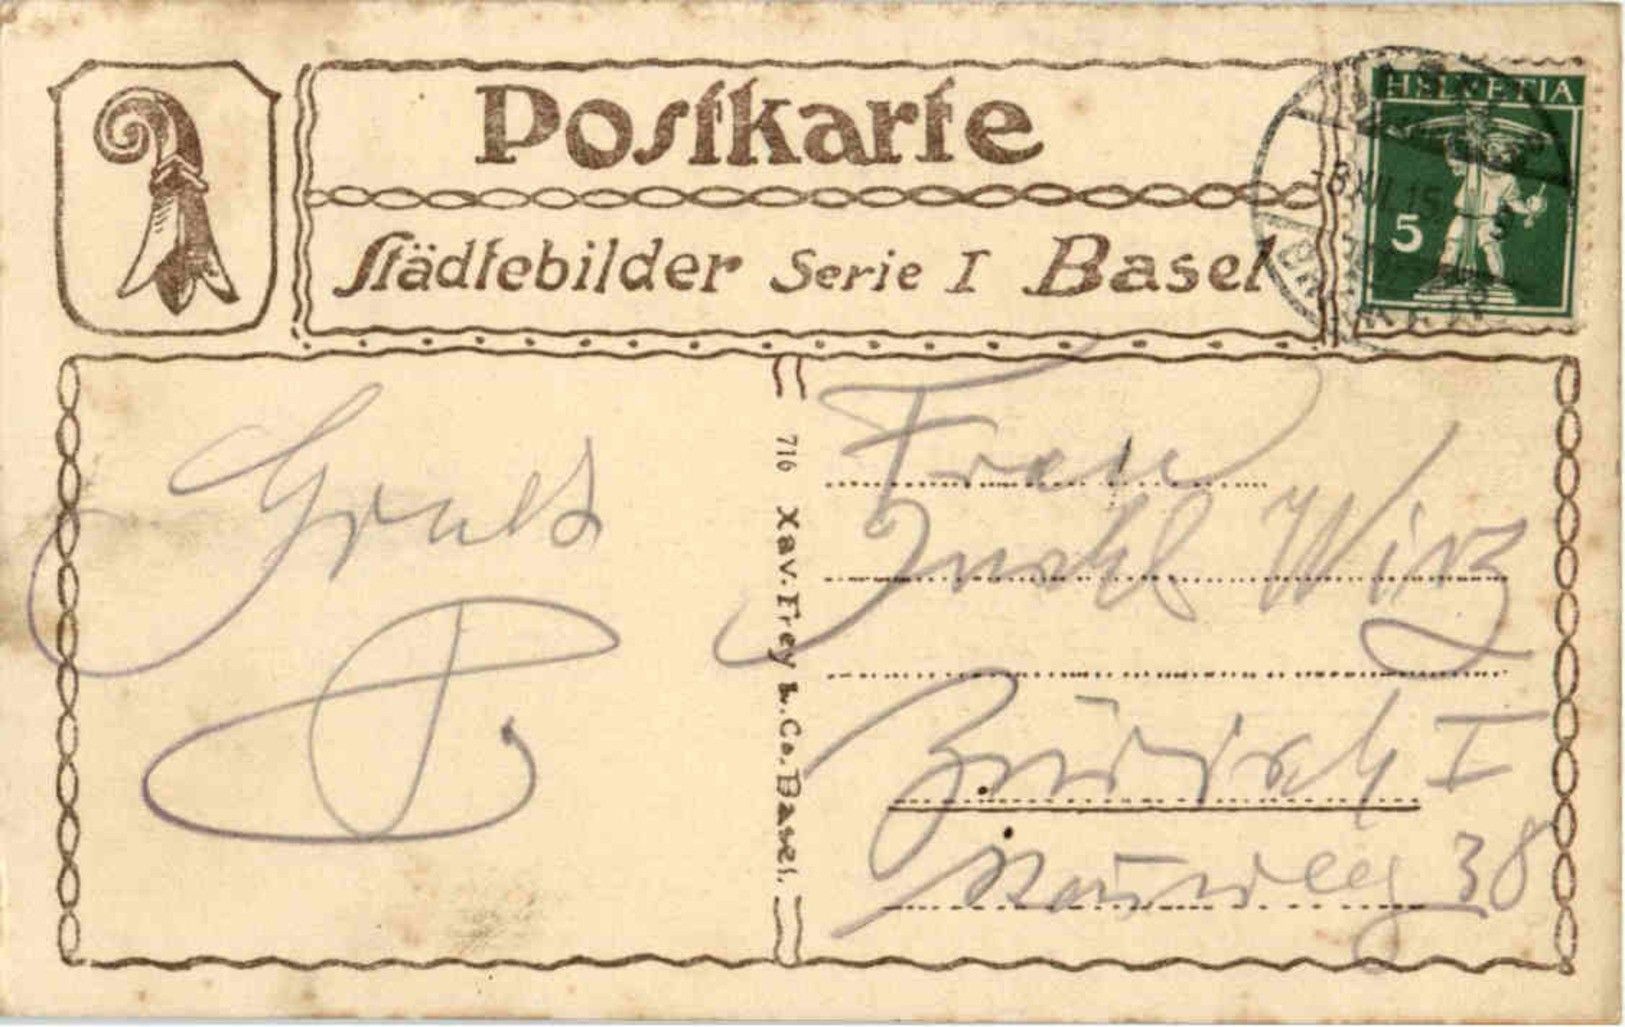 Postkarte
Städtebilder Serie I Basel
HELVETIA
5
Gruss
716 Xav. Frey & Co. Basel.
Frau
Wirz
Zürich I
38